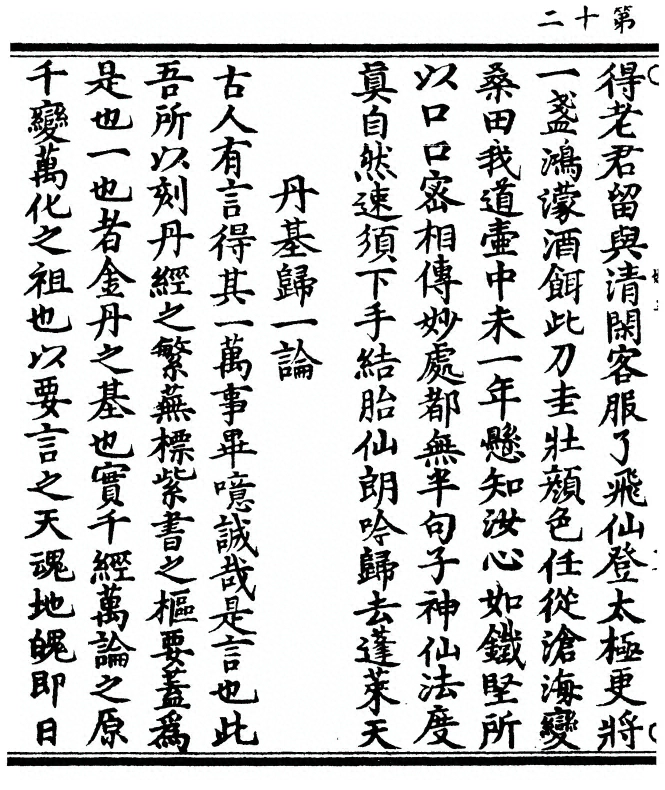 第十二
得老君留與清閑客服了飛仙登太極更將
一盞鴻濛酒餌此刀圭壯顏色任從滄海變
桑田我道壷中未一年懸知汝心如鐵堅所
以口口宻相傳妙處都無半句子神仙法度
眞自然速須下手結胎仙朗吟歸去蓬萊天
丹基歸一論
古人有言得其一萬事畢噫誠哉是言也此
吾所以刻丹經之繁蕪標紫書之樞要蓋爲
是也一也者金丹之基也實千經萬論之原
千變萬化之祖也以要言之天魂地魄即日